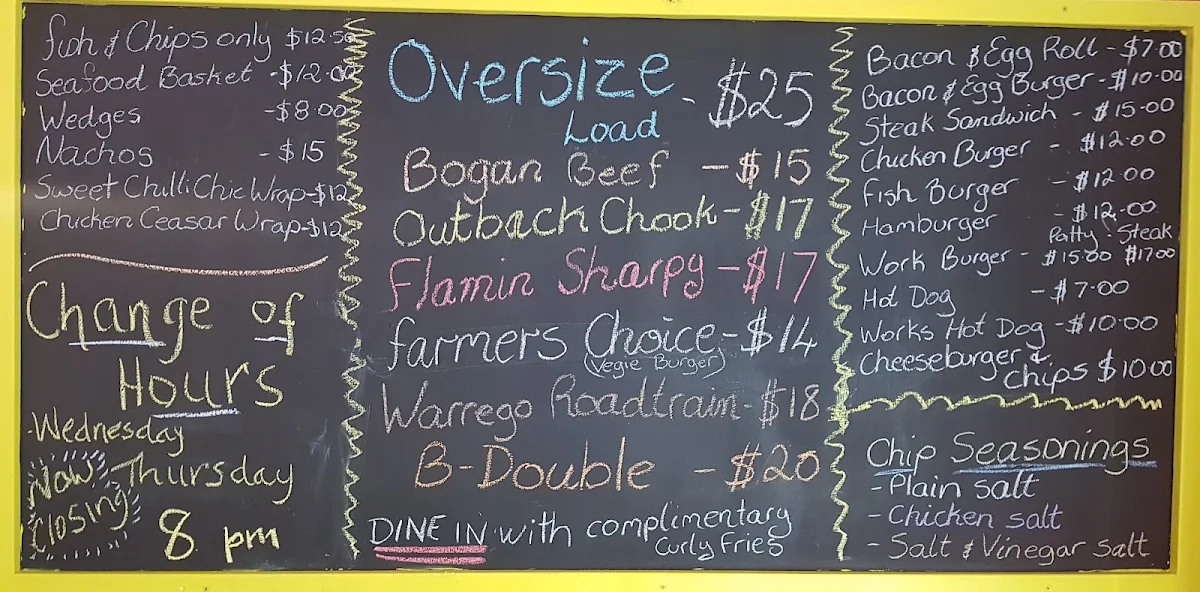 fish & Chips only $12.50
Seafood Basket -$12.00
Wedges -$8.00
Nachos -$15
Sweet Chilli Chic Wrap-$12
Chicken Ceasar Wrap-$12
Change of
Hours
-Wednesday
Now Thursday
Closing
8 pm
Oversize
Load - $25
Bogan Beef -$15
Outback Chook-$17
Flamin Sharpy-$17
farmers Choice-$14
(Vegie Burger)
Warrego Roadtrain-$18
B-Double -$20
DINE IN with complimentary
Curly Fries
Bacon & Egg Roll -$7.00
Bacon & Egg Burger-$10.00
Steak Sandwich - $15.00
Chicken Burger - $12.00
Fish Burger -$12.00
Hamburger -$12.00
Patty : Steak
Work Burger - $15.00 $17.00
Hot Dog -$7.00
Works Hot Dog -$10.00
Cheeseburger &
chips $10.00
Chip Seasonings
-Plain salt
-Chicken salt
-Salt & Vinegar salt